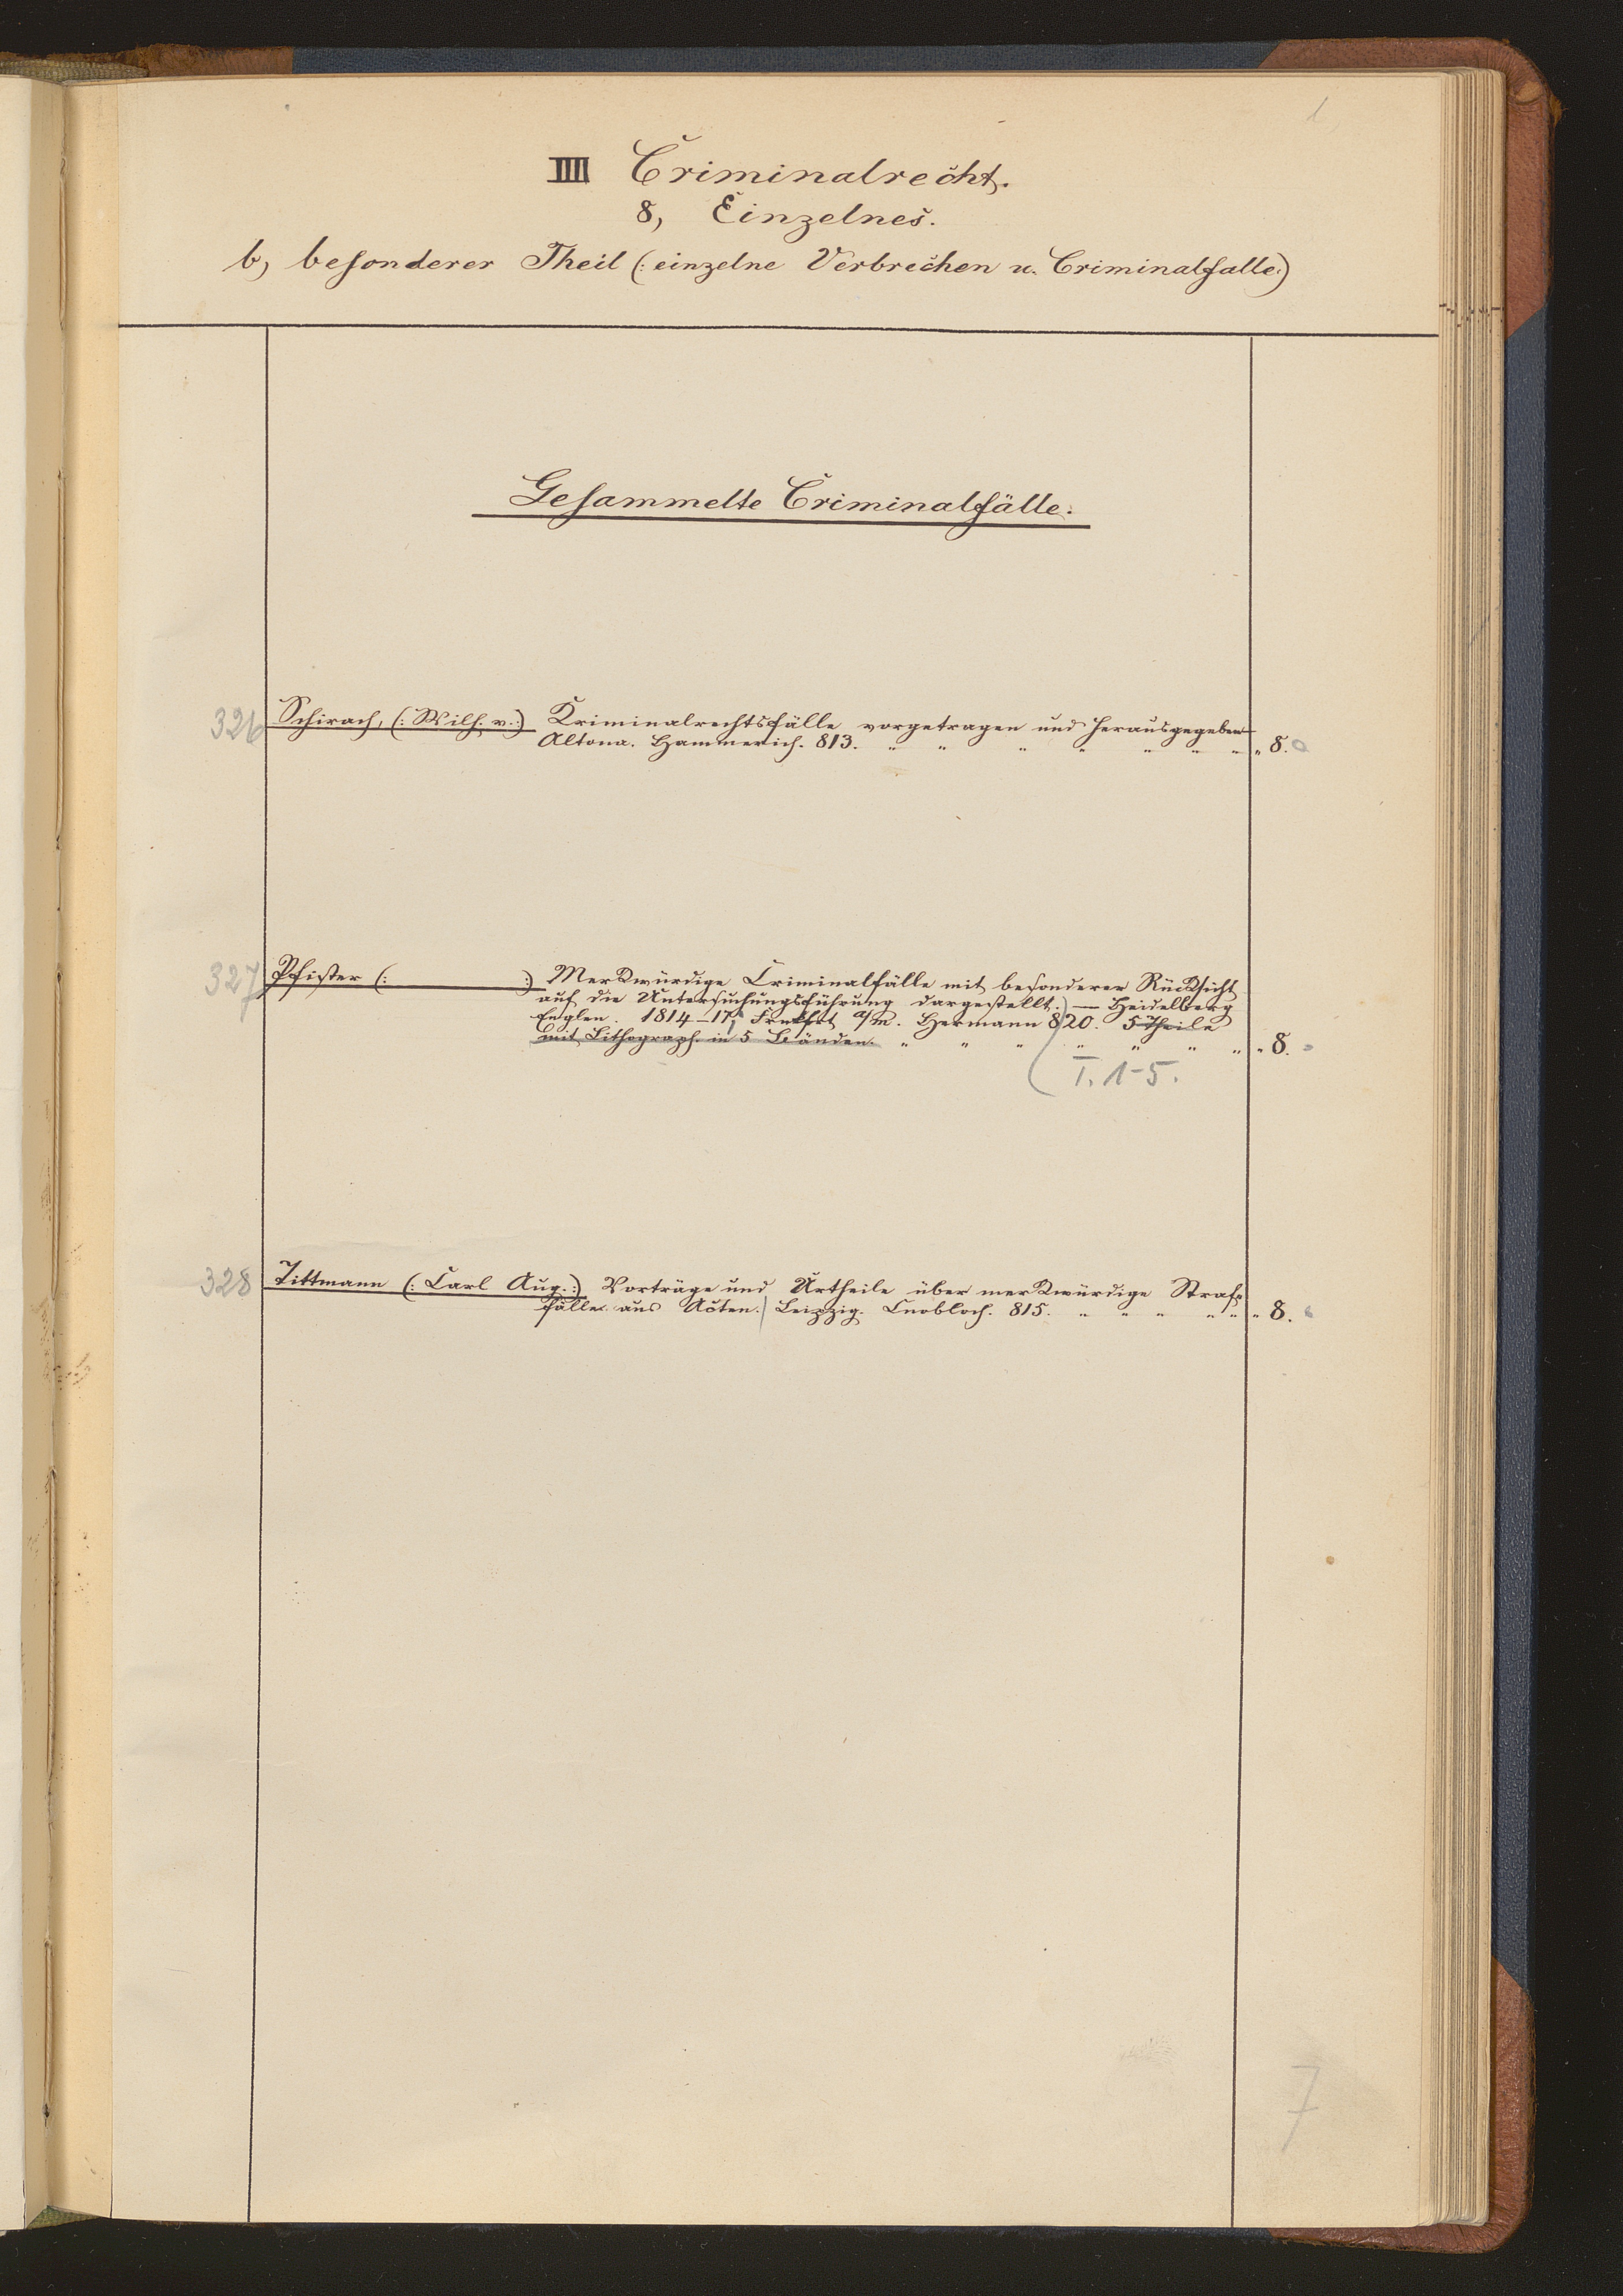 1
IIII Criminalrecht.
8, Einzelnes.
b, besonderer Theil (: einzelne Verbrechen u. Criminalfalle:)
Gesammelte Criminalfälle.
326 Schirach, (: Wilh. v. :) Kriminalrechtsfälle vorgetragen und herausgegeben
Altona. Hammerich. 813. " " " " " " " " 8.
327 Pfister (: :) Merkwürdige Criminalfälle mit besonderer Rücksicht
auf die Untersuchungsführung dargestellt. — Heidelberg
Englen. 1814–17, Frnkfrt a/m. Hermann 820. 5 Theile
mit Lithograph. in 5 Bänden. " " " " " " " " 8.
T. 1-5.
328 Tittmann (: Carl Aug. :) Vorträge und Urtheile über merkwürdige Straf=
fälle aus Acten. Leipzig. Cnobloch. 815. " " " " " " 8.
7